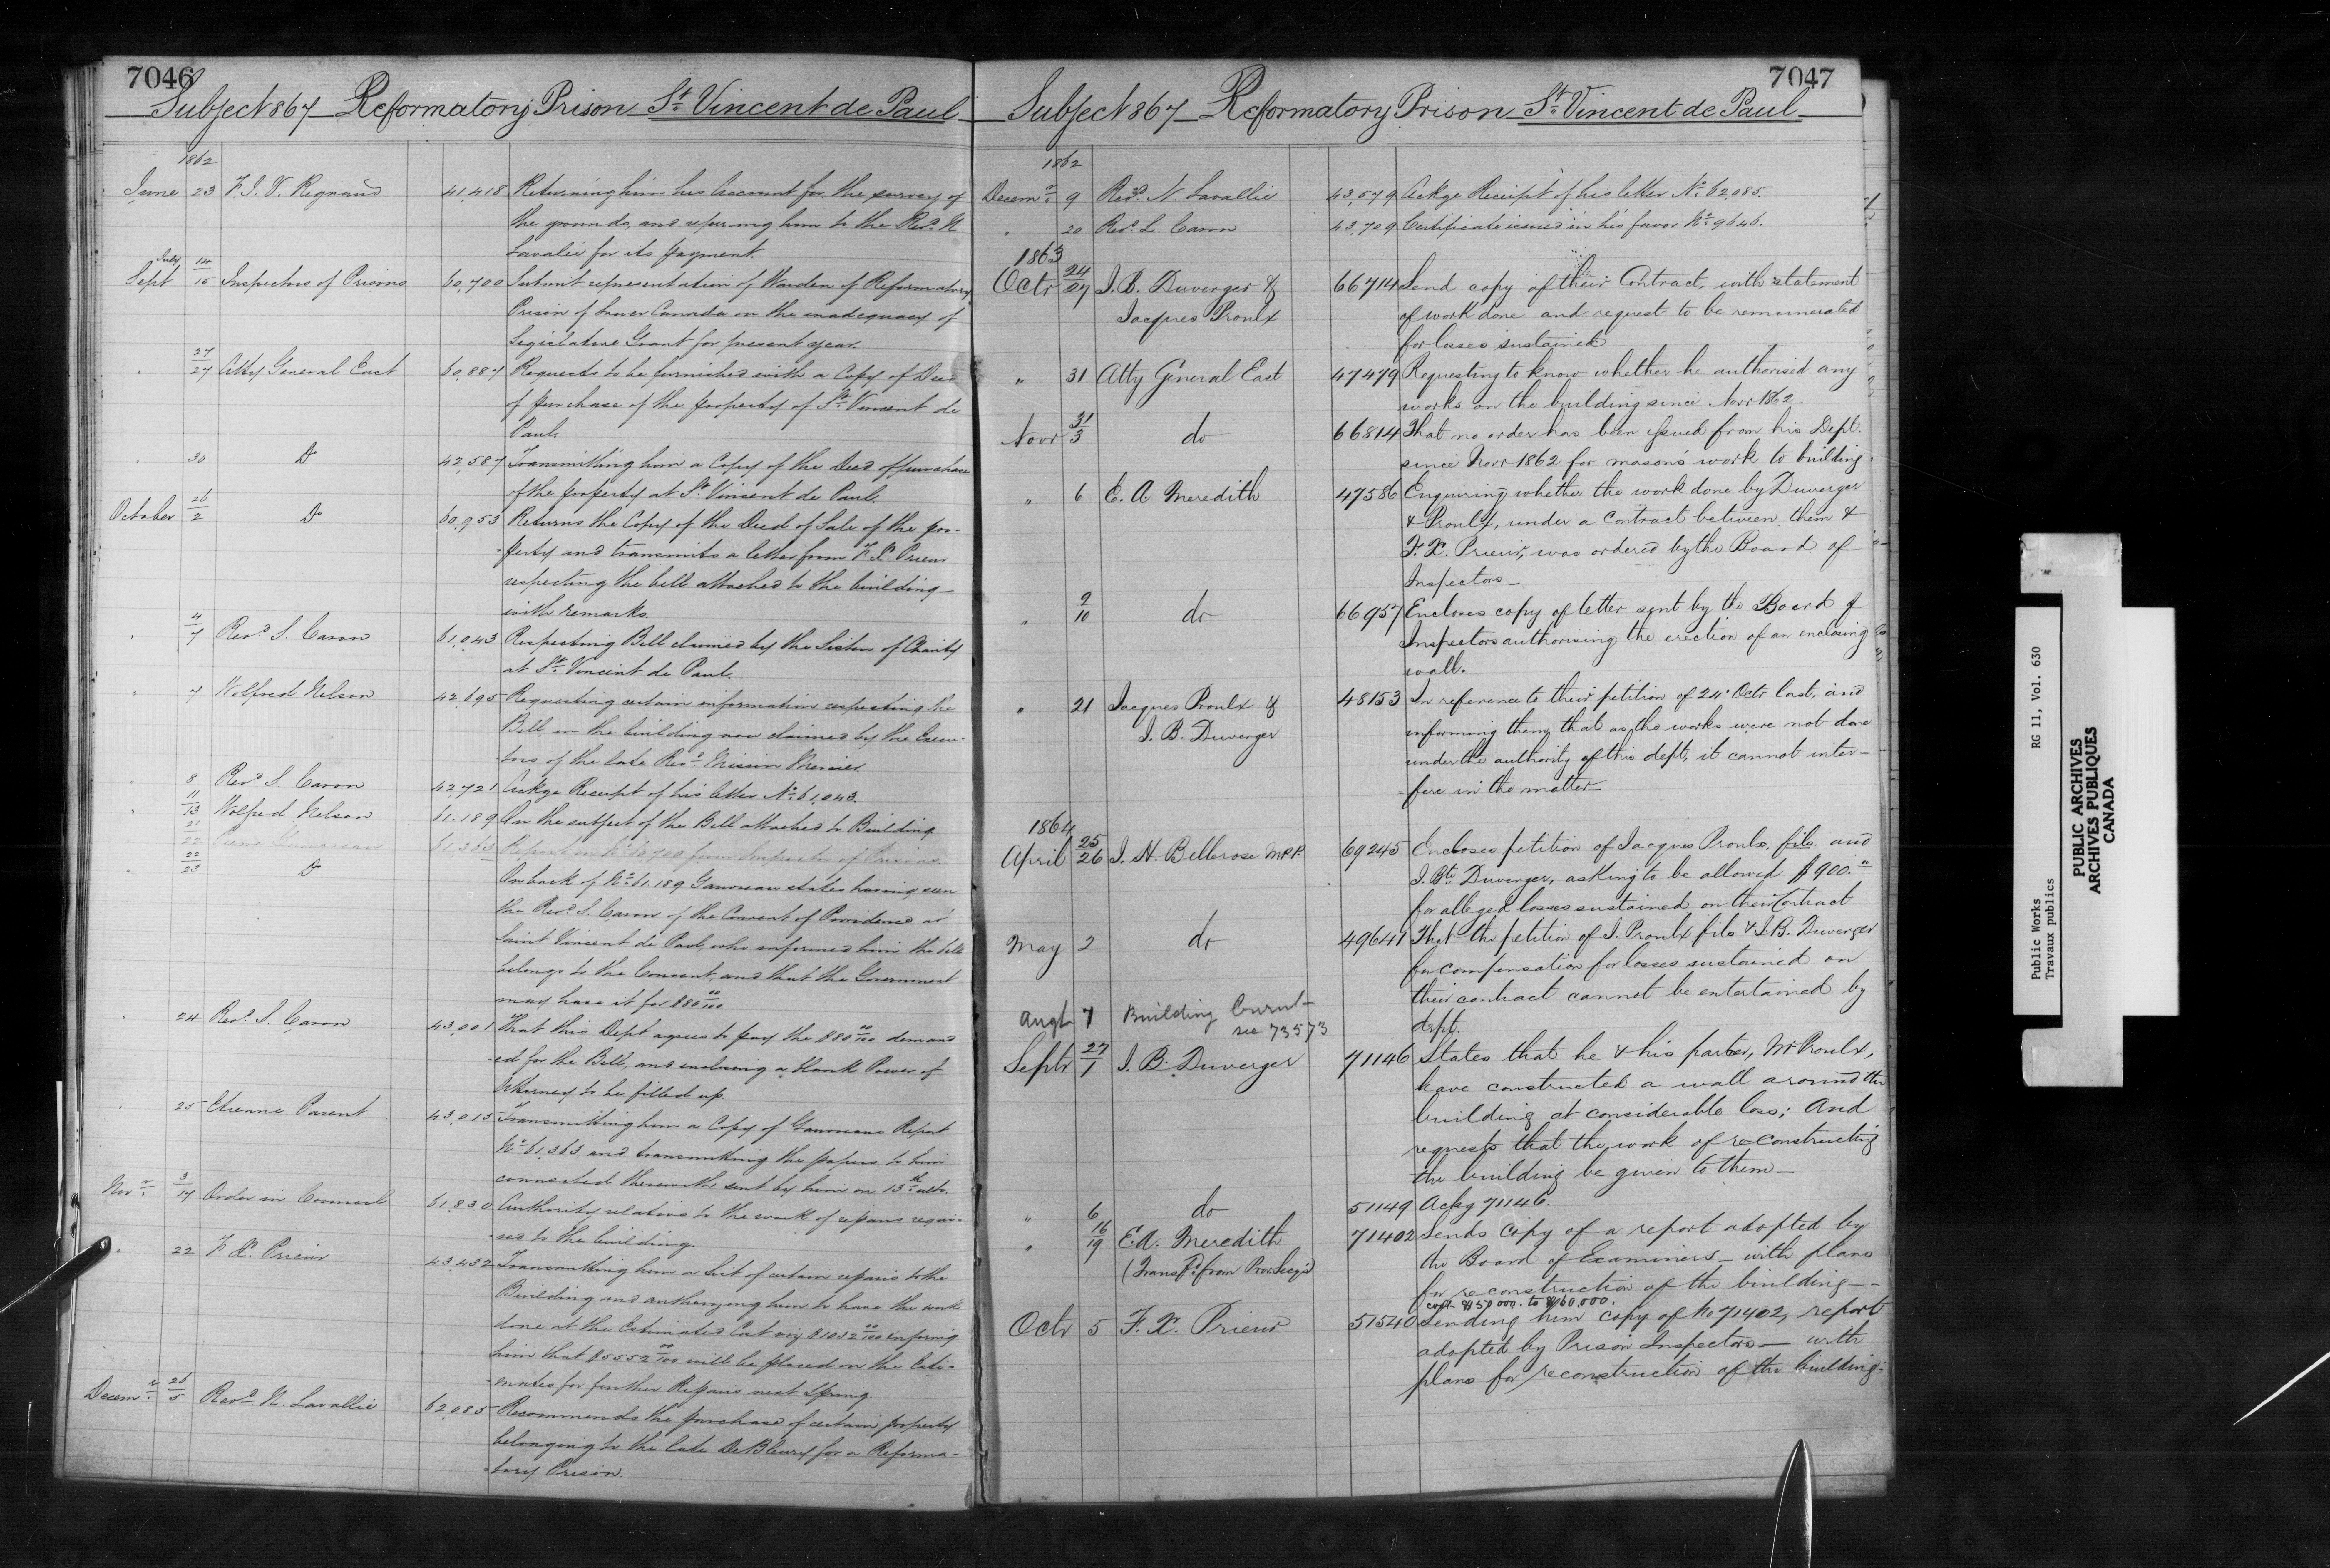 7046
Subject 867 Reformatory Prison St Vincent de Paul
1862
June 23 F. J. V. Regnaud 41,418 Returning him his Account for the survey of
the grounds, and referring him to the Revd N
Lavallée for its payment.
July 14
Sept 15 Inspectors of Prisons 60,700 Submit representation of Warden of Reformatory
Prison of Lower Canada on the inadequacy of
Legislative Grant for present year.
" 27/27 Atty General East 60,887 Requests to be furnished with a Copy of Deed
of purchase of the property of St Vincent de
Paul.
" 30 Do 42,587 Transmitting him a Copy of the Deed of purchase
of the property at St Vincent de Paul.
October 26/2 Do 60,953 Returns the Copy of the Deed of Sale of the pro-
-perty and transmits a letter from F. X. Prieur
respecting the bell attached to the building
with remarks.
" 4/7 Revd L. Caron 61,043 Respecting Bell claimed by the Sisters of Charity
at St Vincent de Paul.
" 7 Wolfred Nelson 42,695 Requesting certain information respecting the
Bell in the building now claimed by the Execu-
-tors of the late Revd
8 Revd L. Caron 42,721 Ackge Receipt of his letter No 61,043.
" 11/13 Wolfred Nelson 61,189 On the subject of the Bell attached to Building
21/22 Pierre Gauvreau 61,363 Report on No 60,700 from Inspectors of Prisons
" 22/23 Do On back of No 61,189 Gauvreau states having seen
the Revd L. Caron of the Convent of Providence at
Saint Vincent de Paul, who informed him the bell
belongs to the Convent, and that the Government
may have it for $80 00/100
" 24 Revd L. Caron 43,001 That this Dept agrees to pay the $80 00/100 demand
-ed for the Bell, and enclosing a blank Power of
Attorney to be filled up.
" 25 Etienne Parent 43,015 Transmitting him a Copy of Gauvreau's Report
No 61,363 and transmitting the papers to him
connected therewith sent by him on 13th ulto.
Novr 3/17 Order in Council 61,830 Authority relative to the work of repairs requi-
-red to the building.
" 22 F. X. Prieur 43,432 Transmitting him a List of certain repairs to the
Building and authorizing him to have the work
done at the Estimated Cost viz $1032 00/100 informing
him that $5552 00/100 will be placed on the Esti-
-mates for further Repairs next Spring
Decemr 26/5 Revd N. Lavallée 62,085 Recommends the purchase of certain property
belonging to the late De Bleury for a Reforma-
-tory Prison.
7047
Subject 867 Reformatory Prison St Vincent de Paul
1862
Decemr 9 Revd N. Lavallée 43,579 Ackge Receipt of his letter No 62,085.
" 20 Revd L. Caron 43,709 Certificate issued in his favor No 9646.
1863
Octr 24/27 J. B. Duverger & 66714 Send copy of their Contract, with statement
Jacques Proulx of work done and request to be remunerated
for losses sustained
" 31 Atty General East 47479 Requesting to know whether he authorised any
works on the building since Novr 1862.
Novr 31/3 do 66814 That no order has been issued from his Dept.
since Novr 1862 for mason's work to building.
" 6 E. A Meredith 47586 Enquiring whether the work done by Duverger
& Proulx, under a contract between them &
F. X. Prieur, was ordered by the Board of
Inspectors—
" 9/10 do 66957 Encloses copy of letter sent by the Board of
Inspectors authorising the erection of an enclosing
wall.
" 21 Jacques Proulx & 48153 In reference to their petition of 24' Octr last, and
J. B. Duverger informing them that as the works were not done
under the authority of this dept, it cannot inter-
-fere in the matter—
1864
April 25/26 J. H. Bellerose M.P.P. 69245 Encloses petition of Jacques Proulx, fils. and
J. Bte Duverger, asking to be allowed $900."
for alleged losses sustained on their Contract
May 2 do 49641 That the petition of J. Proulx fils & J. B. Duverger
for compensation for losses sustained on
their contract cannot be entertained by
dept.
Augt 7 Building Burnt—
see 73573
Septr 27/1 J. B. Duverger 71146 States that he & his partner, Mr Proulx,
have constructed a wall around the
building at considerable loss; And
requests that the work of re-constructing
the building be given to them—
" 6 do 51149 Ackg 71146.
" 16/19 E. A. Meredith 71402 Sends copy of a report adopted by
(Transfd from Prov. Secy's) the Board of Examiners — with plans
for re construction of the building—
cost $150 000. to $160,000.
Octr 5 F. X. Prieur 51540 Sending him copy of No 71402, report
adopted by Prison Inspectors — with
plans for reconstruction of the building.
Public Works RG 11, Vol. 630
Travaux publics
PUBLIC ARCHIVES
ARCHIVES PUBLIQUES
CANADA